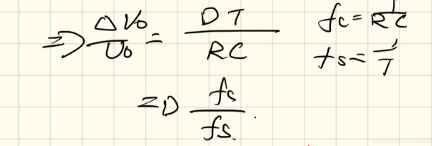 ⇒ ΔVo/Uo = DT/RC fc = 1/RC
fs = 1/T
= D fc/fs.